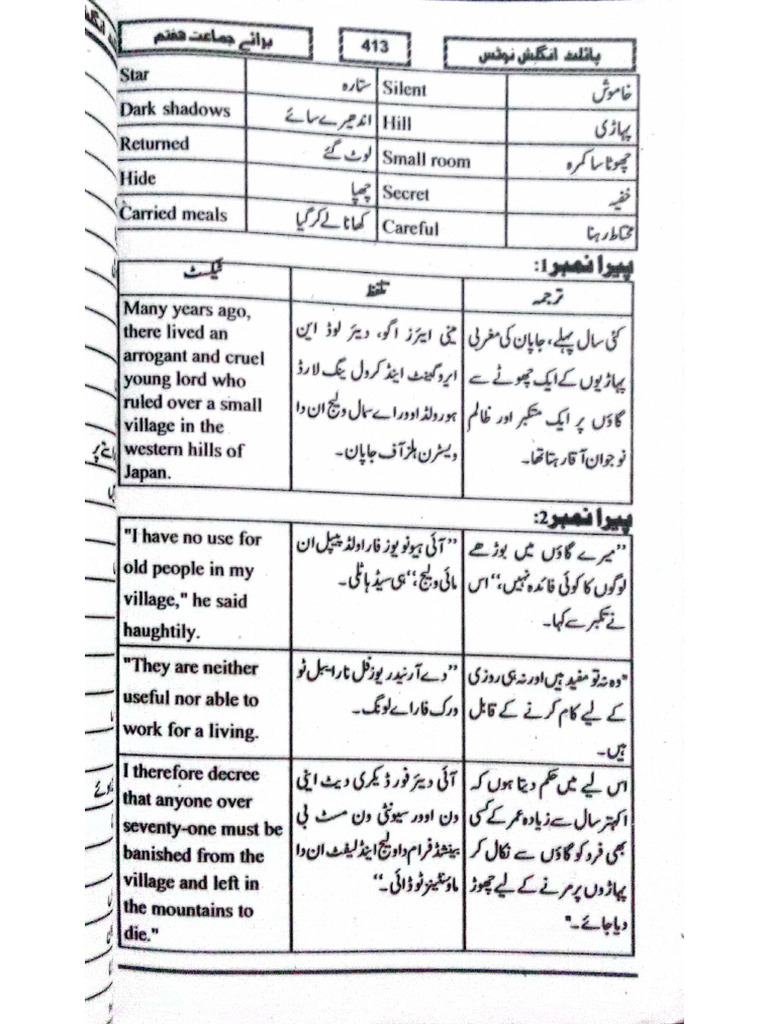 برائے جماعت ہفتم
413
پائلٹ انگلش نوٹس
Star ستارہ Silent خاموش
Dark shadows اندھیرے سائے Hill پہاڑی
Returned لوٹ گئے Small room چھوٹا سا کمرہ
Hide چھپا Secret خفیہ
Carried meals کھانا لے کر گیا Careful محتاط رہنا
پیرا نمبر1:
ٹیکسٹ
تلفظ
ترجمہ
Many years ago,
there lived an
arrogant and cruel
young lord who
ruled over a small
village in the
western hills of
Japan.
مینی ایئرز اگو، دیئر لوڈ این
ایروگینٹ اینڈ کرول ینگ لارڈ
ہو رولڈ اوور اے سمال ولیج ان دا
ویسٹرن ہلز آف جاپان۔
کئی سال پہلے، جاپان کی مغربی
پہاڑیوں کے ایک چھوٹے سے
گاؤں پر ایک متکبر اور ظالم
نوجوان آقا رہتا تھا۔
پیرا نمبر2:
"I have no use for
old people in my
village," he said
haughtily.
”آئی ہیو نو یوز فار اولڈ پیپل ان
مائی ولیج،“ ہی سیڈ ہاٹلی۔
”میرے گاؤں میں بوڑھے
لوگوں کا کوئی فائدہ نہیں،“ اس
نے تکبر سے کہا۔
"They are neither
useful nor able to
work for a living.
”دے آر نیدر یوزفل نار ایبل ٹو
ورک فار اے لونگ۔
"وہ نہ تو مفید ہیں اور نہ ہی روزی
کے لیے کام کرنے کے قابل
ہیں۔
I therefore decree
that anyone over
seventy-one must be
banished from the
village and left in
the mountains to
die."
آئی دیئر فور ڈیکری دیٹ اینی
ون اوور سیونٹی ون مسٹ بی
بینشڈ فرام دا ولیج اینڈ لیفٹ ان دا
ماؤنٹینز ٹو ڈائی۔“
اس لیے میں حکم دیتا ہوں کہ
اکہتر سال سے زیادہ عمر کے کسی
بھی فرد کو گاؤں سے نکال کر
پہاڑوں پر مرنے کے لیے چھوڑ
دیا جائے۔"